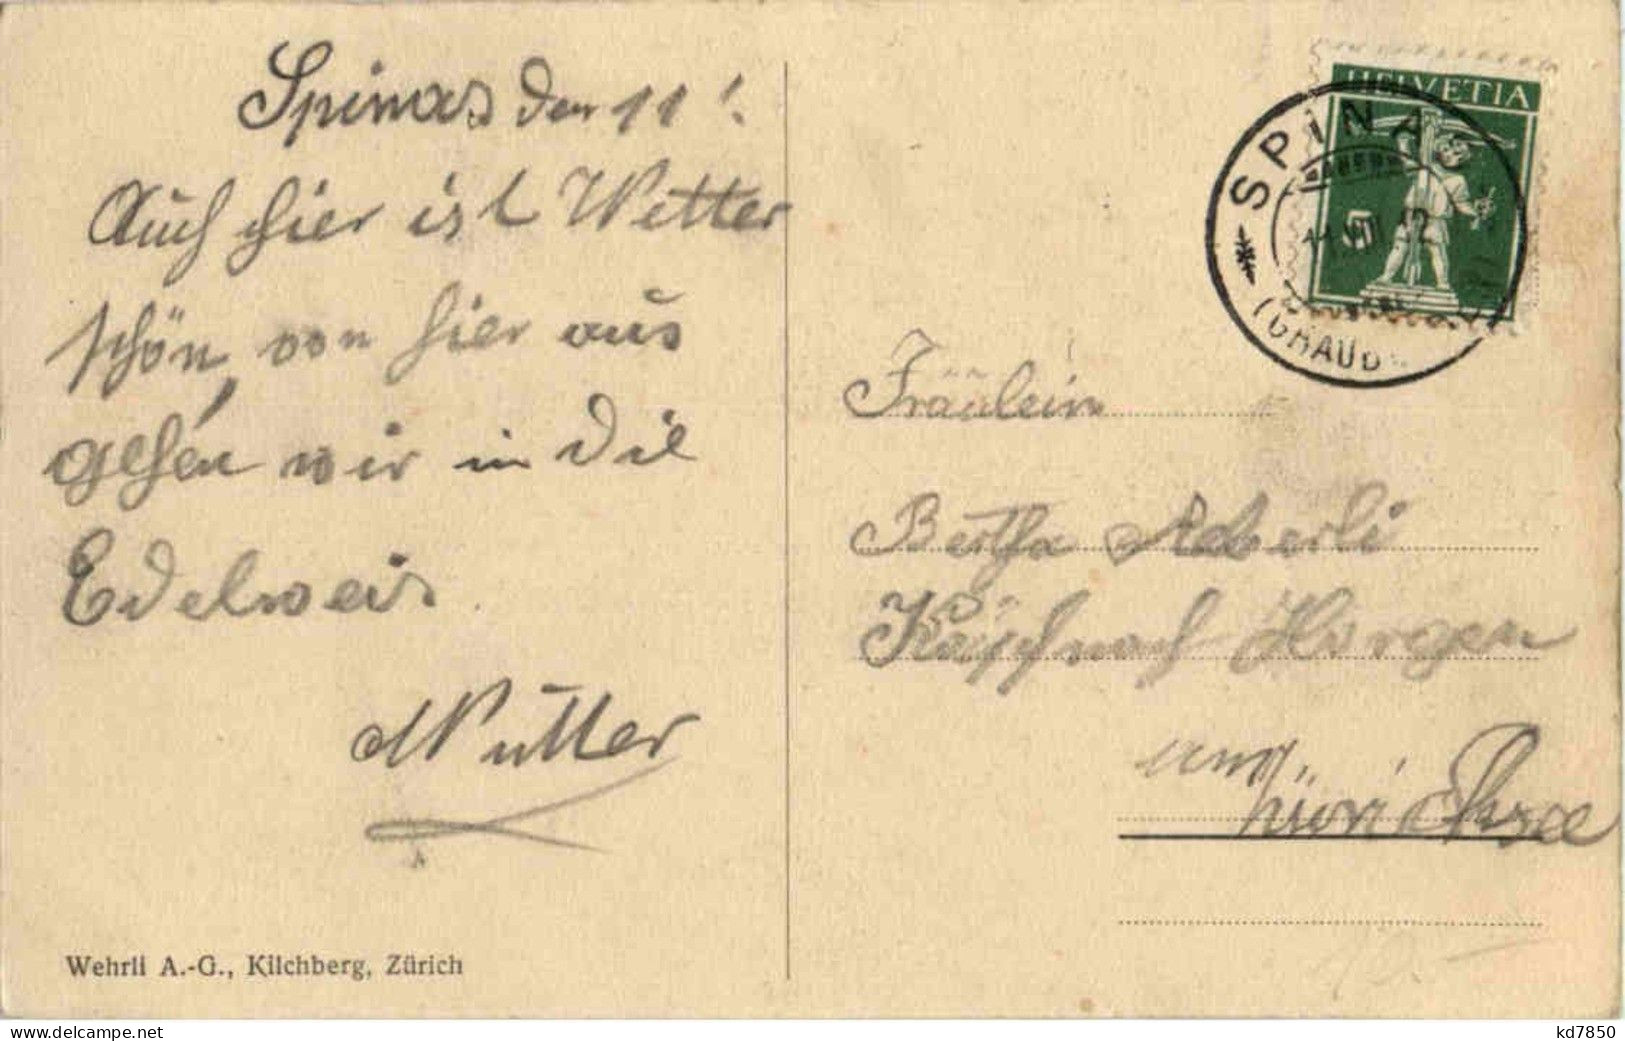 Spinas den 11 !.
Auch hier ist Wetter
schön, von hier aus
gehen wir in die
Edelweis.
Mutter
Wehrli A.-G., Kilchberg, Zürich
HELVETIA
5
SPINAS
11.VIII.12
(GRAUB
Fräulein
Bertha Aeberli
Käpfnach Horgen
am
Zürichsee
www.delcampe.net
kd7850